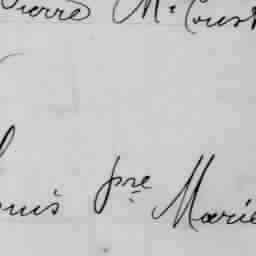 Pierre Mc Coust
ouis pre Marie